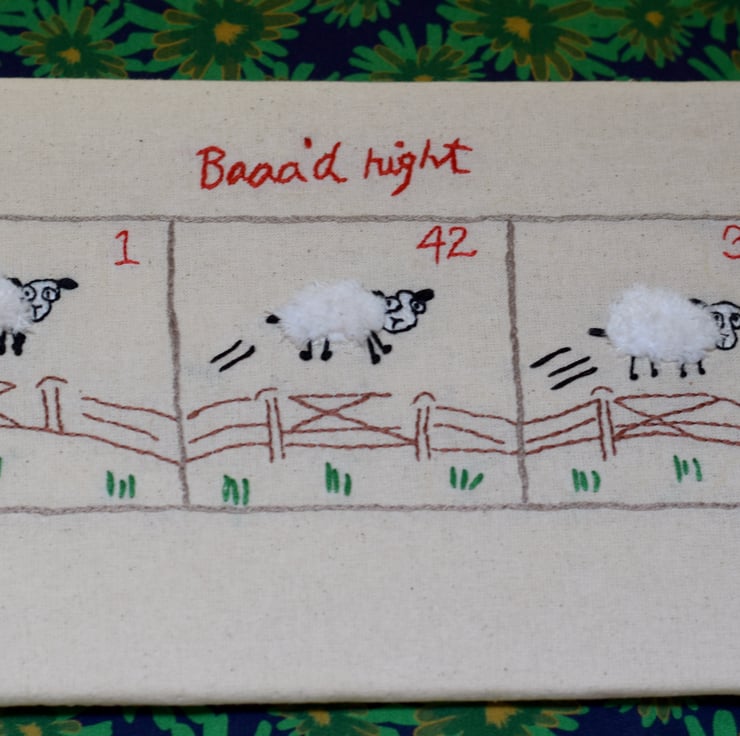 Baaa'd night
1
42
3